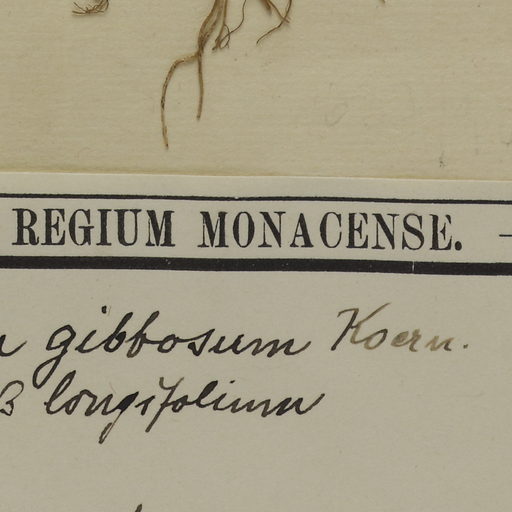 REGIUM MONACENSE. —
gibbosum Koern.
β longifolium